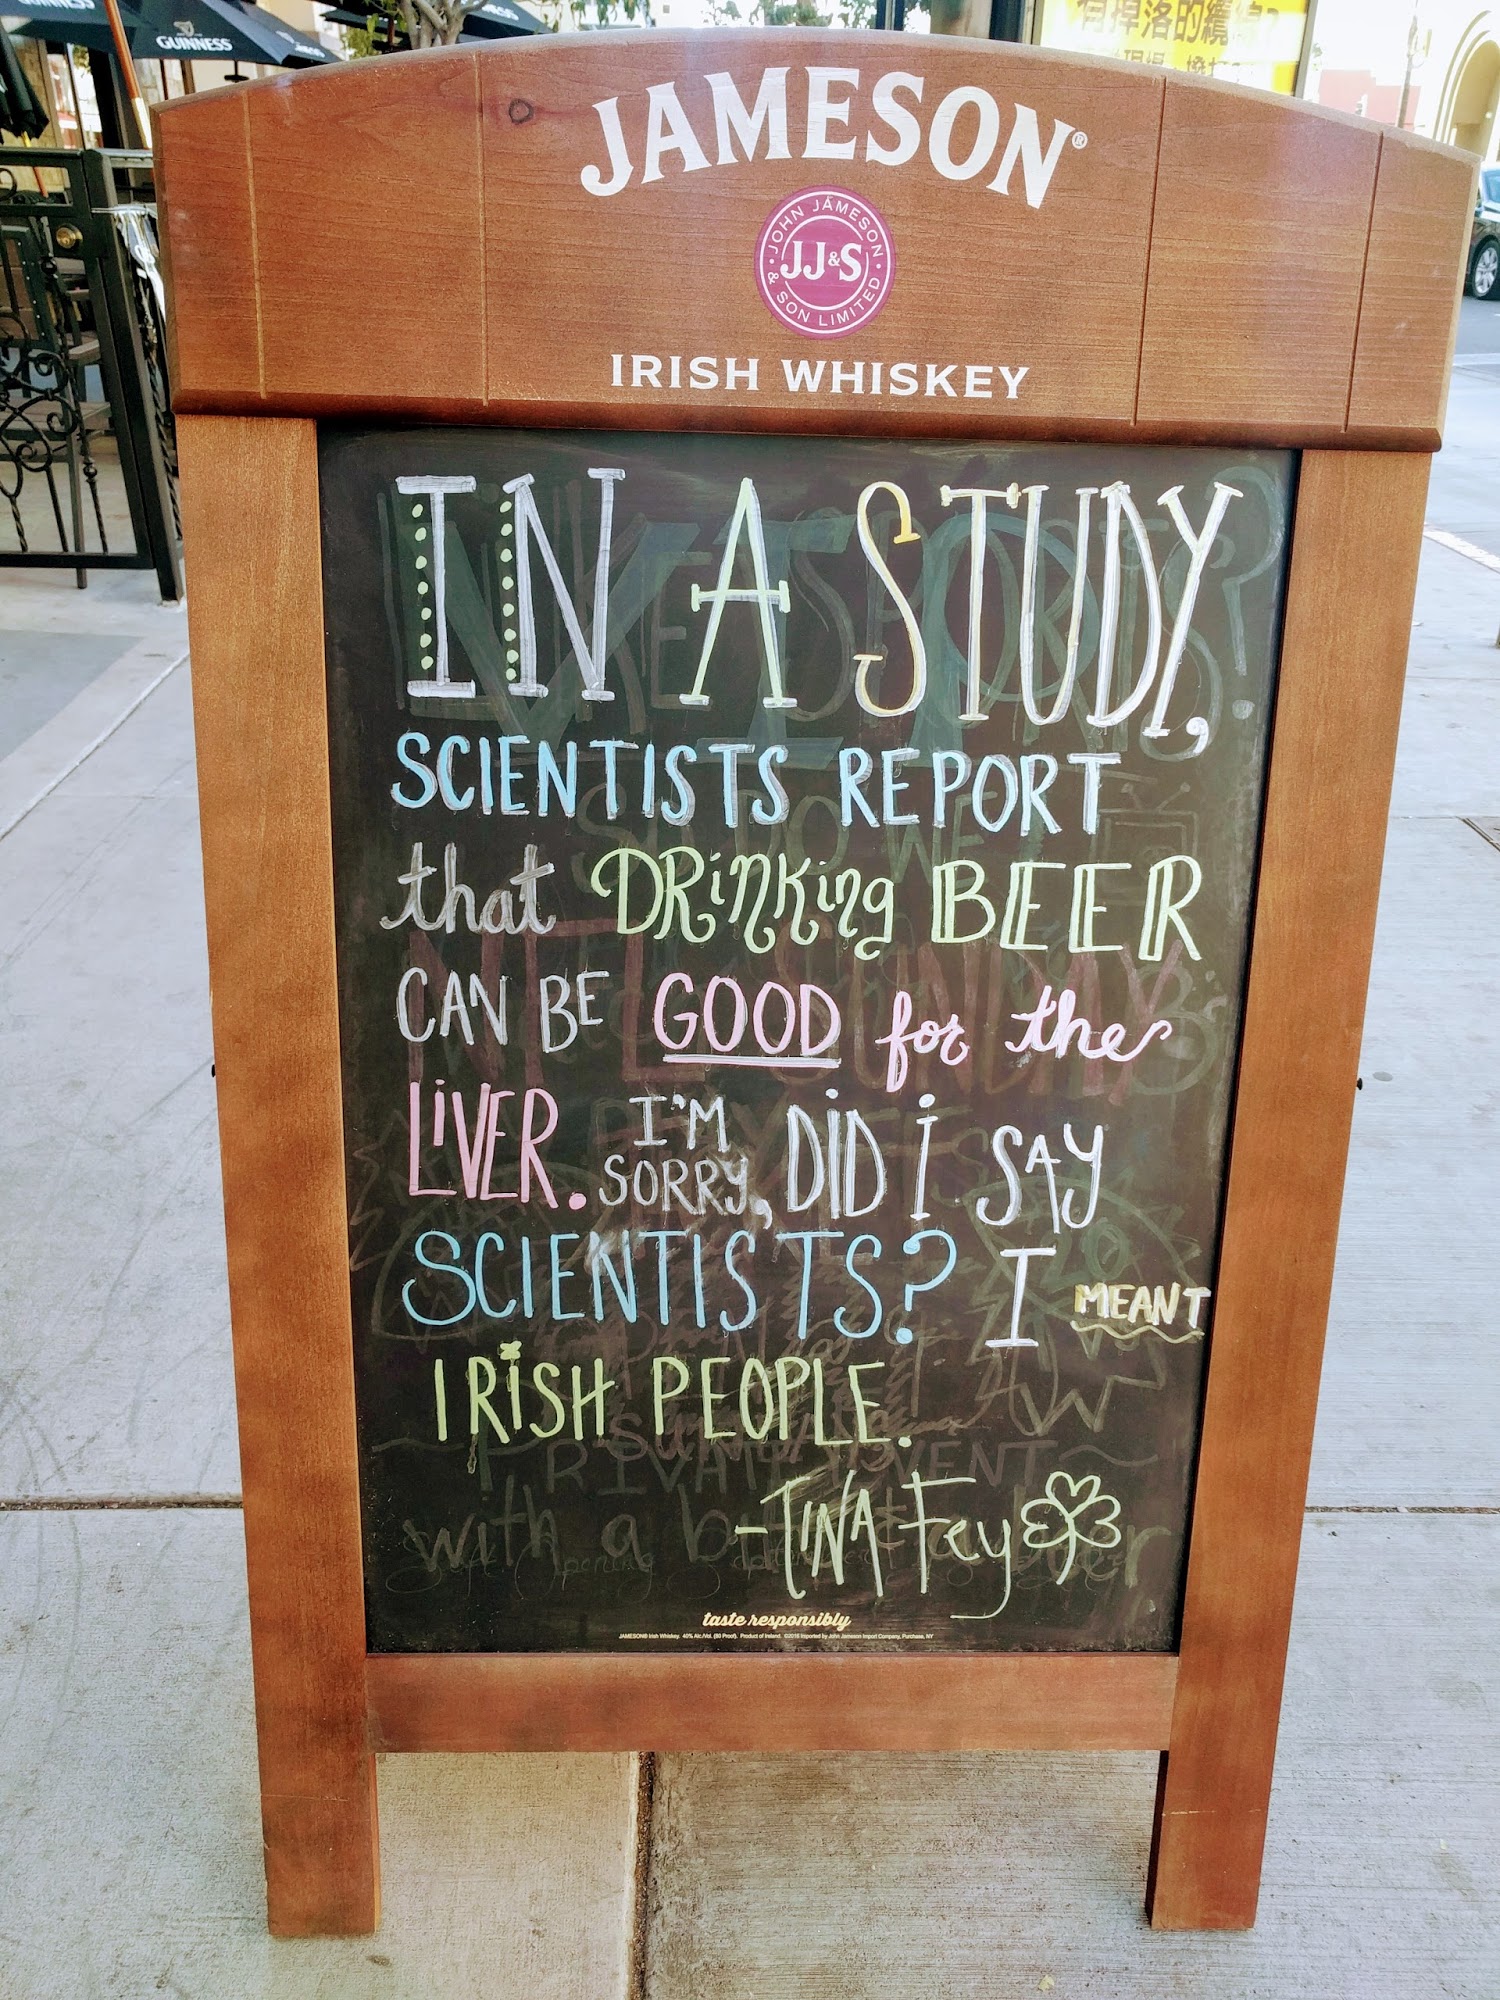 GUINNESS
JAMESON®
JOHN JAMESON & SON LIMITED
JJ&S
IRISH WHISKEY
IN A STUDY,
SCIENTISTS REPORT
that DRINKING BEER
CAN BE GOOD for the
LIVER. I'M SORRY, DID I SAY
SCIENTISTS? I MEANT
IRISH PEOPLE.
-TINA FEY
taste responsibly
JAMESON® Irish Whiskey. 40% Alc./Vol. (80 Proof). Product of Ireland. ©2016 Imported by John Jameson Import Company, Purchase, NY